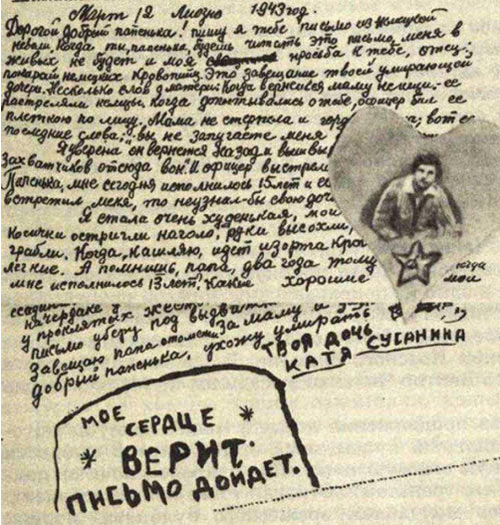 Март 12 Лиозно 1943 год.
Дорогой добрый папенька! пишу я тебе письмо из немецкой
неволи. Когда ты, папенька, будешь читать это письмо, меня в
живых не будет и моя просьба к тебе, отец:
покарай немецких кровопийц. Это завещание твоей умирающей
дочери. Несколько слов о матери: Когда вернешься маму не ищи. ее
расстреляли немцы. Когда допытывались о тебе, офицер бил ее
плеткою по лицу. Мама не стерпела и гордо вот ее
последние слова: „вы не запугаете меня
Я уверена он вернется назад и вышвы
захватчиков отсюда вон." И офицер выстрел
Папенька, мне сегодня исполнилось 15 лет и ес
встретил меня, то неузнал-бы свою доч
Я стала очень худенькая, мои
Косички остригли наголо, руки высохли,
грабли. Когда, кашляю, идет изорта кро
легкие. А помнишь, папа, два года тому когда
мне исполнилось 13 лет. Какие хорошие мои
на чердаке
у проклятых жест
письмо уберу под
Завещаю папа отомсти: за маму и
добрый папенька, ухожу умирать
ТВОЯ ДОЧЬ
КАТЯ СУСАНИНА
МОЕ
СЕРДЦЕ
ВЕРИТ.
ПИСЬМО ДОЙДЕТ.